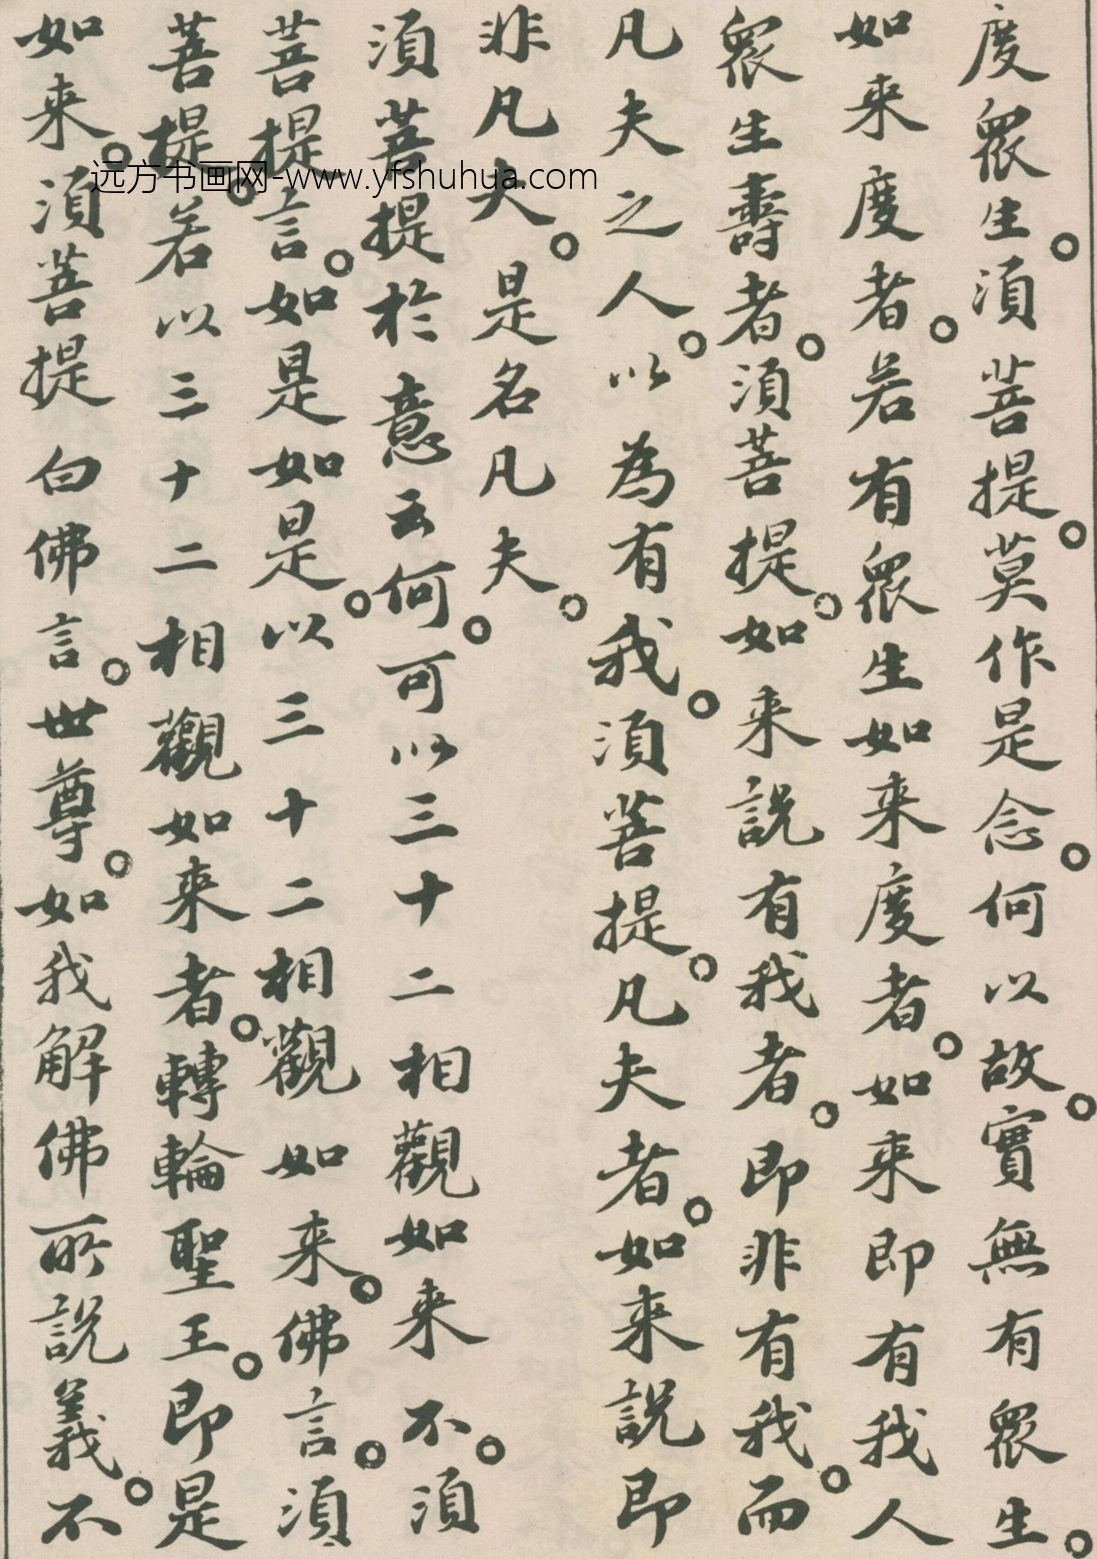 度眾生。須菩提。莫作是念。何以故。實無有眾生。
如来度者。若有眾生如来度者。如来即有我人
眾生壽者。須菩提。如来說有我者。即非有我。而
凡夫之人。以為有我。須菩提。凡夫者。如来說即
非凡夫。是名凡夫。
須菩提於意云何。可以三十二相觀如来不。須
菩提言。如是如是。以三十二相觀如来。佛言。須
菩提。若以三十二相觀如来者。轉輪聖王。即是
如来。須菩提白佛言。世尊。如我解佛所說義。不
远方书画网-www.yfshuhua.com